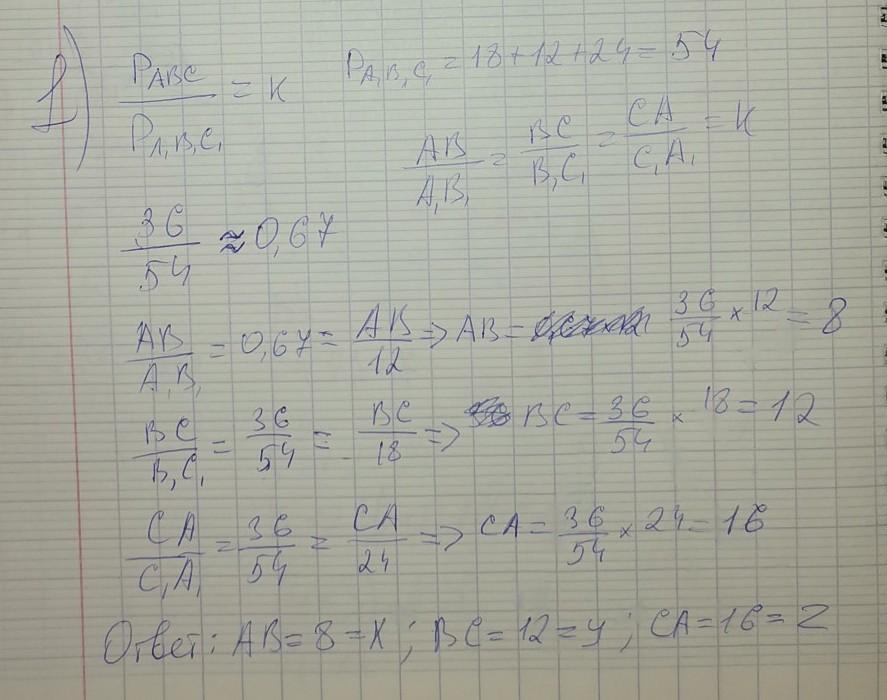 1) P_ABC / P_A₁B₁C₁ = K P_A₁B₁C₁ = 18+12+24 = 54
AB / A₁B₁ = BC / B₁C₁ = CA / C₁A₁ = K
36 / 54 ≈ 0,67
AB / A₁B₁ = 0,67 = AB / 12 => AB = 36 / 54 × 12 = 8
BC / B₁C₁ = 36 / 54 = BC / 18 => BC = 36 / 54 × 18 = 12
CA / C₁A₁ = 36 / 54 = CA / 24 => CA = 36 / 54 × 24 = 16
Ответ: AB = 8 = X ; BC = 12 = y ; CA = 16 = Z